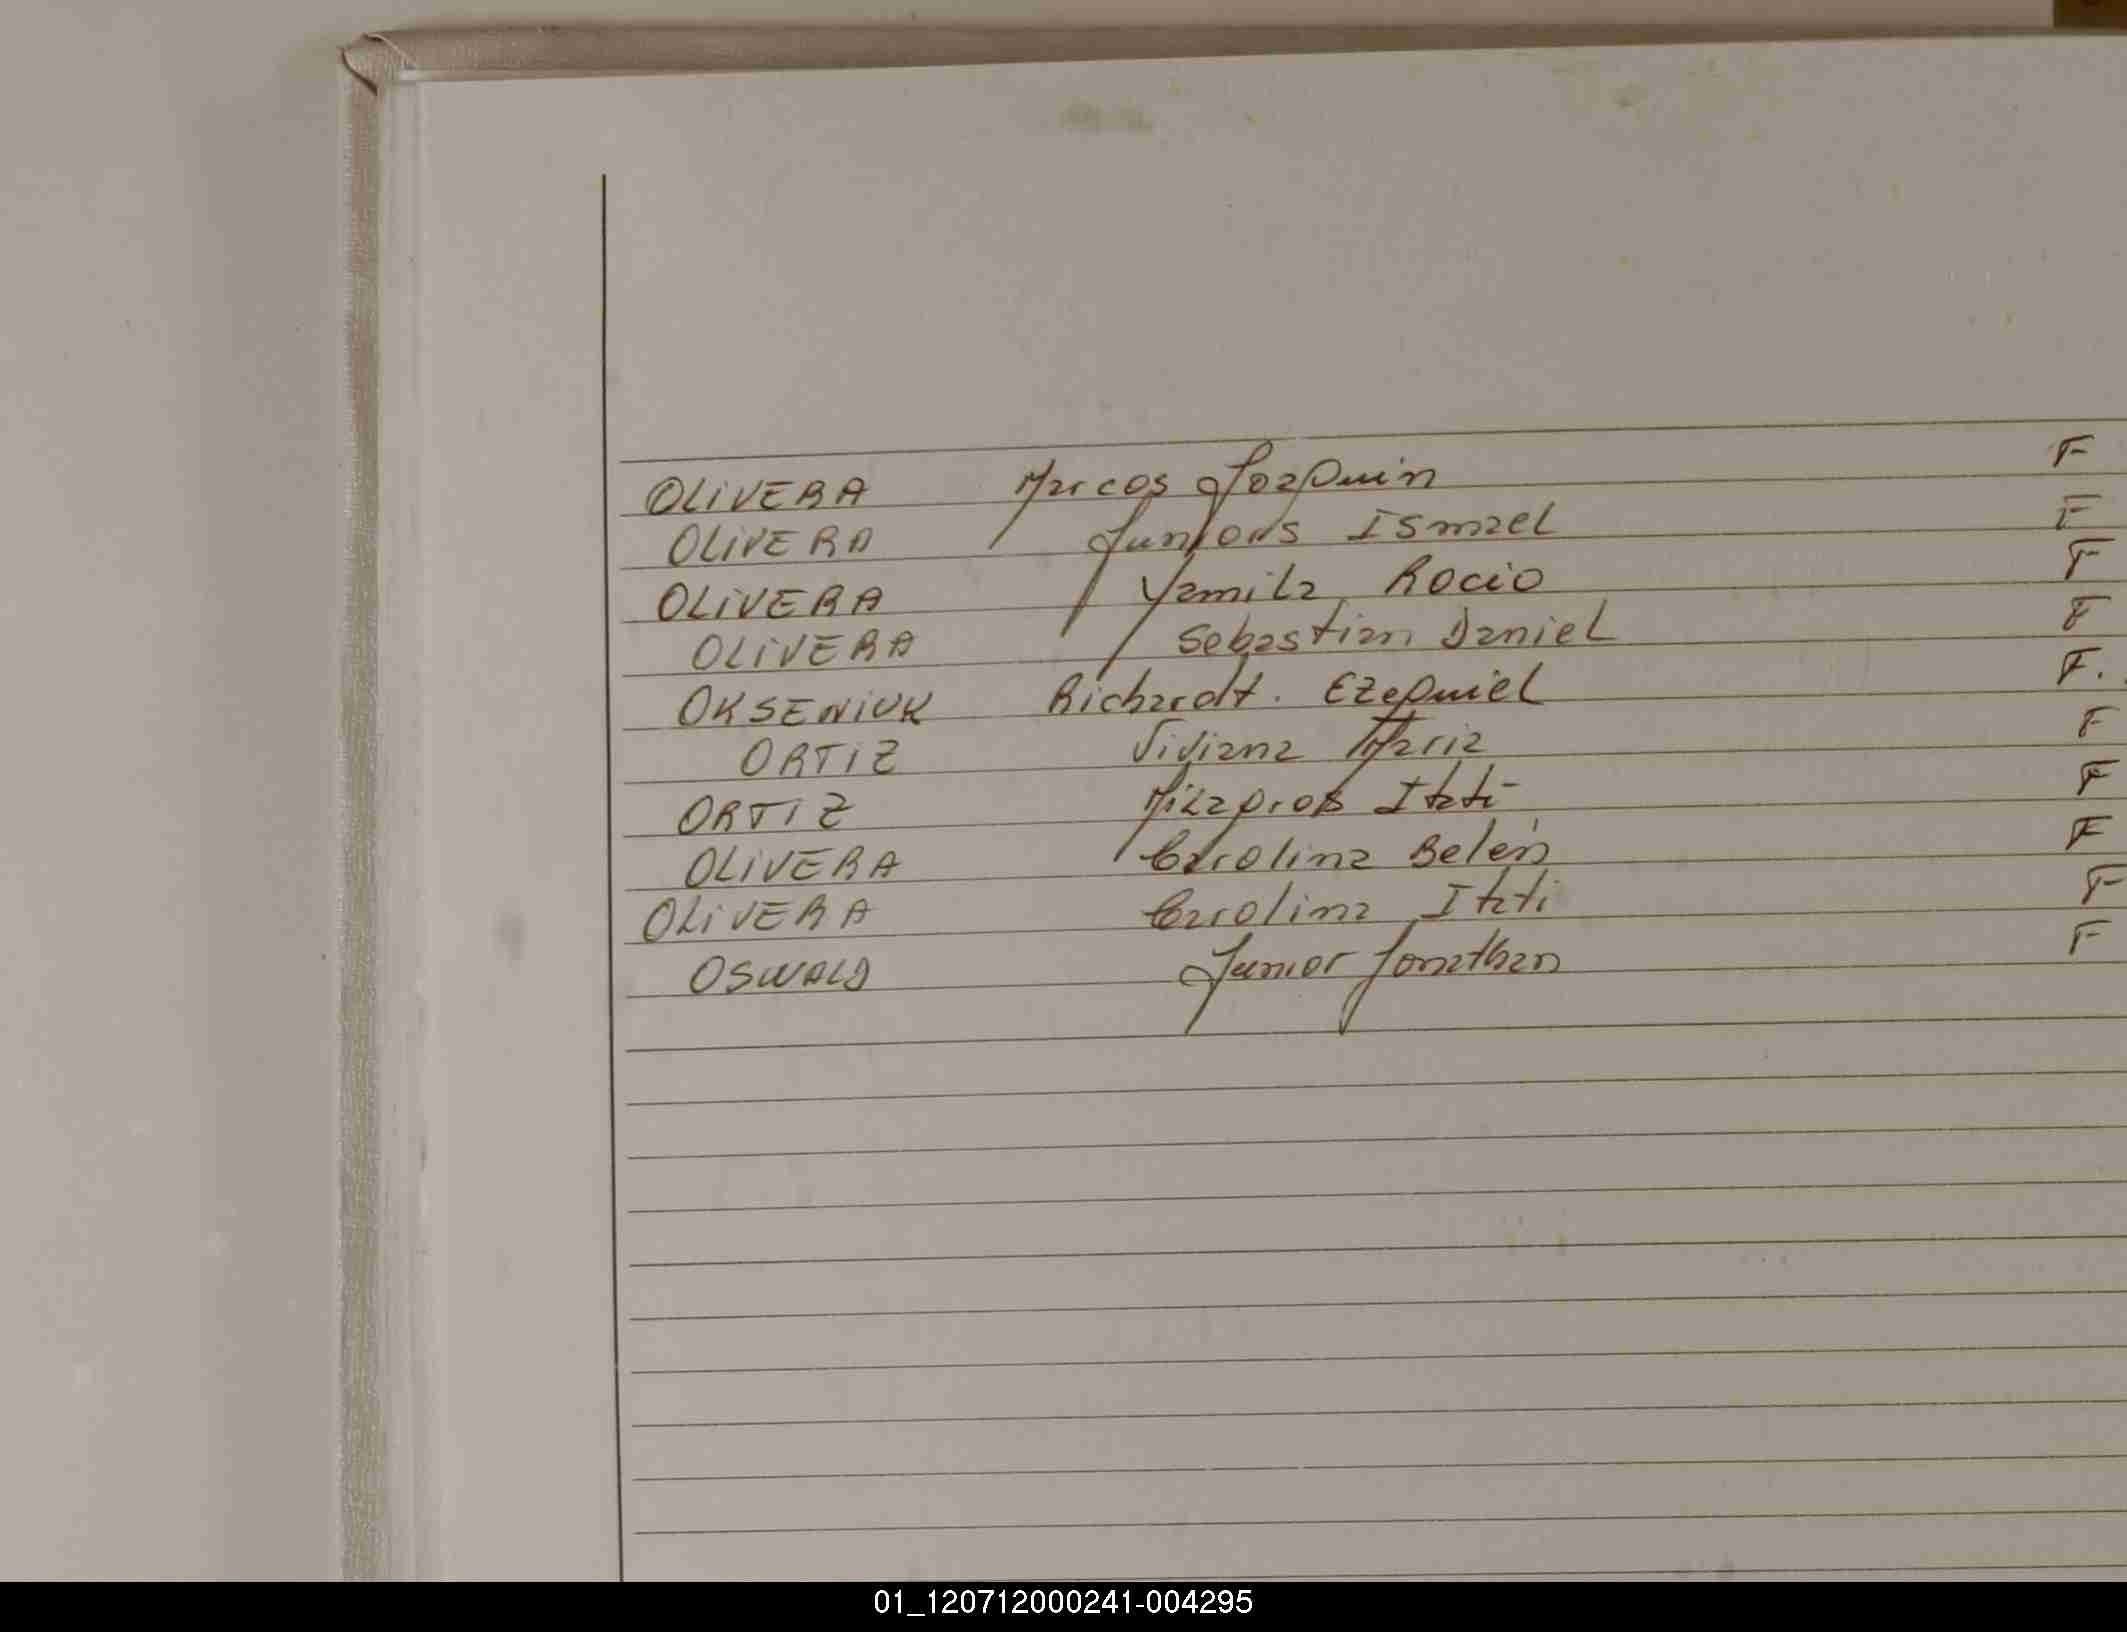 OLIVERA Marcos Joaquin F
OLIVERA Juniors Ismael F
OLIVERA Yamila Rocio F
OLIVERA Sebastian Daniel F
OKSENIUK Richardt. Ezequiel F.
ORTIZ Viviana Maria F
ORTIZ Milagros Itati F
OLIVERA Carolina Belén F
OLIVERA Carolina Itati F
OSWALD Junior Jonathan F
01_120712000241-004295